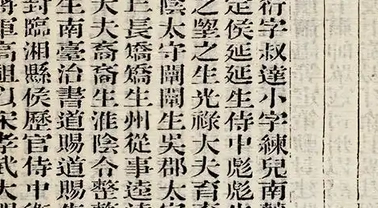 衍字叔達小字練兒南蘭
定侯延延生侍中彪彪
之朢之生光祿大夫育
陰太守闡闡生吳郡太守
丘長矯矯生州從事逵
大夫裔裔生淮陰令整整
生南臺治書道賜道賜生
封臨湘縣侯歷官侍中衛
將軍高祖以宋孝武大明